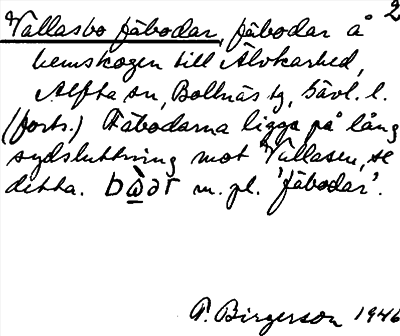 2
Vallasbo fäbodar, fäbodar å
hemskogen till Älvkarhed,
Alfta sn, Bollnäs tg, Gävl. l.
(forts.) Fäbodarna ligga på lång
sydsluttning mot Vallasen, se
detta. bὼər m. pl. 'fäbodar'.
P. Birgerson 1946